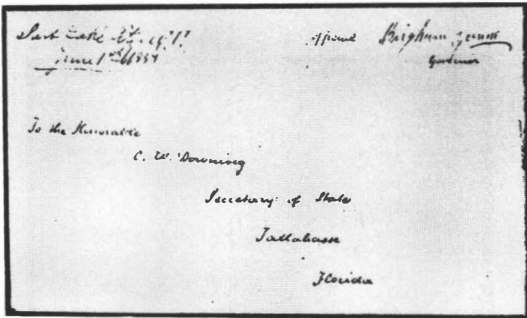 Salt Lake City U.T.
June 1st 1854
Official Brigham Young
Governor
To the Honorable
C. W. Downing
Secretary of State
Tallahassee
Florida